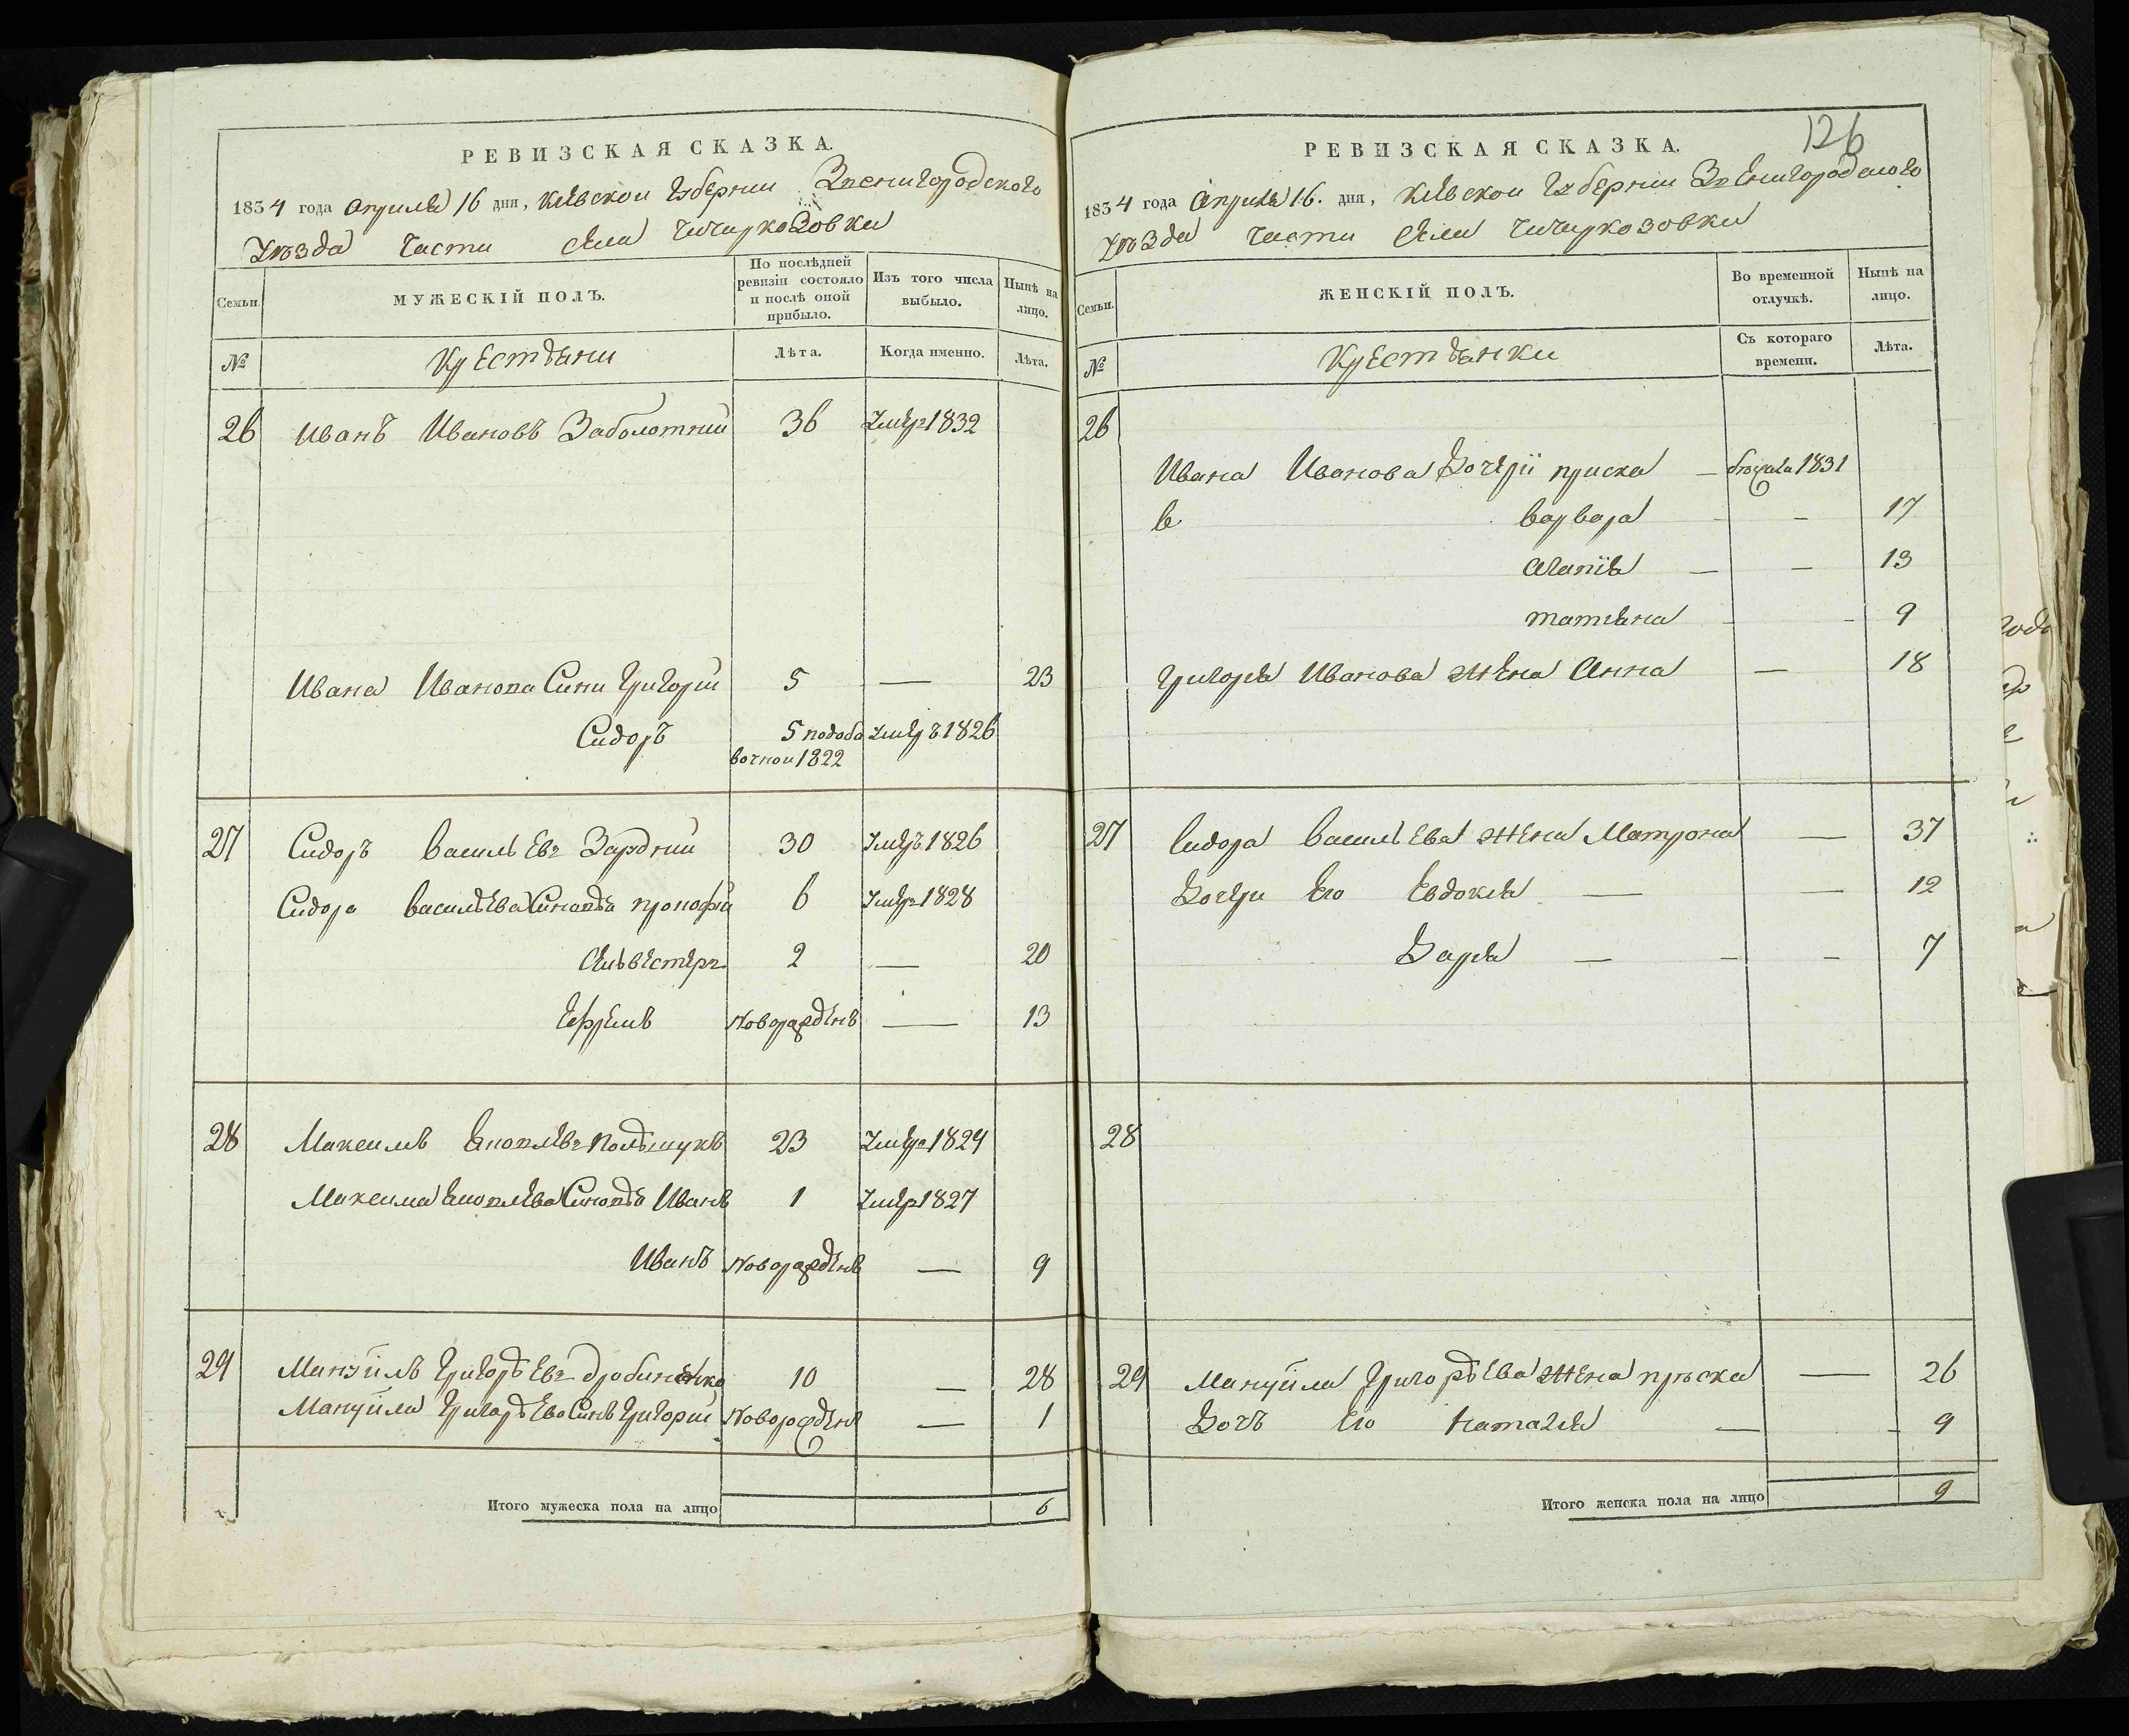 РЕВИЗСКАЯ СКАЗКА.
1834 года Апреля 16 дня, Киевской Губернии Звенигородского
Уезда Части села Чичиркозовки
Семьи.
МУЖЕСКІЙ ПОЛЪ.
По послѣдней ревизіи состояло и послѣ оной прибыло.
Изъ того числа выбыло.
Нынѣ на лицо.
№
Крестьяни
Лѣта.
Когда именно.
Лѣта.
26 Иванъ Ивановъ Заболотний 36 Умеръ 1832
Ивана Иванова Сини Григорий 5 — 23
Сидоръ 5 подоба Умеръ 1826
вочной 1822
27 Сидоръ Васильевъ 30 Умеръ 1826
Сидора Васильева Синовья Прокофий 6 Умеръ 1828
Сельвестеръ 2 — 20
Ефремъ Новорожденъ — 13
28 Максимъ Поліщукъ 23 Умеръ 1829
Максима Синовья Иванъ 1 Умеръ 1827
Иванъ Новорожденъ — 9
29 Мануйлъ Григорьевъ 10 — 28
Мануйла Григорьева Синъ Григорий Новорожденъ — 1
Итого мужеска пола на лицо 6
126
РЕВИЗСКАЯ СКАЗКА.
1834 года Апреля 16. дня, Киевской Губернии Звенигородского
Уезда Части села Чичиркозовки
Семьи.
ЖЕНСКІЙ ПОЛЪ.
Во временной отлучкѣ.
Нынѣ на лицо.
№
Крестьянки
Съ котораго времени.
Лѣта.
26
Ивана Иванова Дочери Приска — бежала 1831
Варвара — 17
Агапія — — 13
Татьяна — 9
Григорья Иванова жена Анна — 18
27 Сидора Васильева жена Матрона — 37
Дочери Его Евдокия — — 12
Дарья — — — 7
28
29 Мануйла Григорьева жена Приска — 26
Дочь Его Наталия — — 9
Итого женска пола на лицо 9